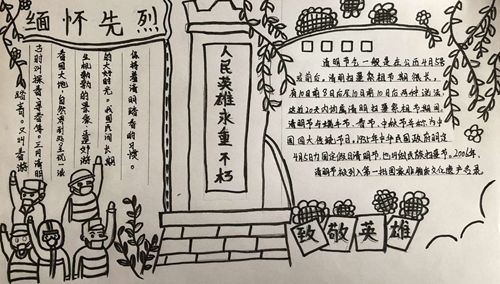 缅怀先烈
踏青。又叫春游
古时叫探春、寻春等。三月清明
春回大地，自然界到处呈现一派
生机勃勃的景象，正是郊游
的大好时光。我国民间长期
保持着清明踏青的习惯。
人民英雄永垂不朽
清明节气一般是在公历4月5号
或前后，清明扫墓祭祖节期很长，
有10日前8日后至10日前10日后两种说法，
这近20天内均属清明扫墓祭祖节期间。
清明节与端午节、春节、中秋节并称为中
国四大传统节日。1935年中华民国政府明定
4月5日为国定假日清明节，也叫做民族扫墓节。2006年，
清明节被列入第一批国家非物质文化遗产名录。
致敬英雄